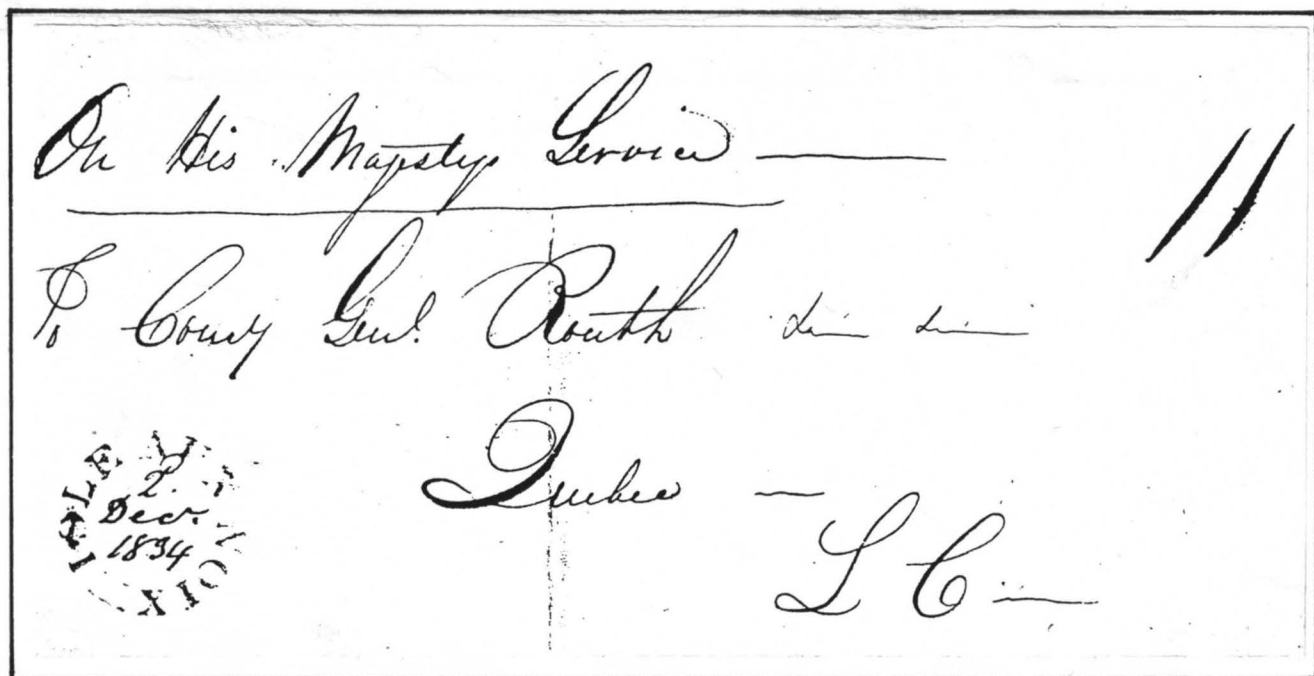 On His Majestys Service
11
To Comy Genl. Routh
Quebec
L C
ISLE AUX NOIX
2.
Decr.
1834